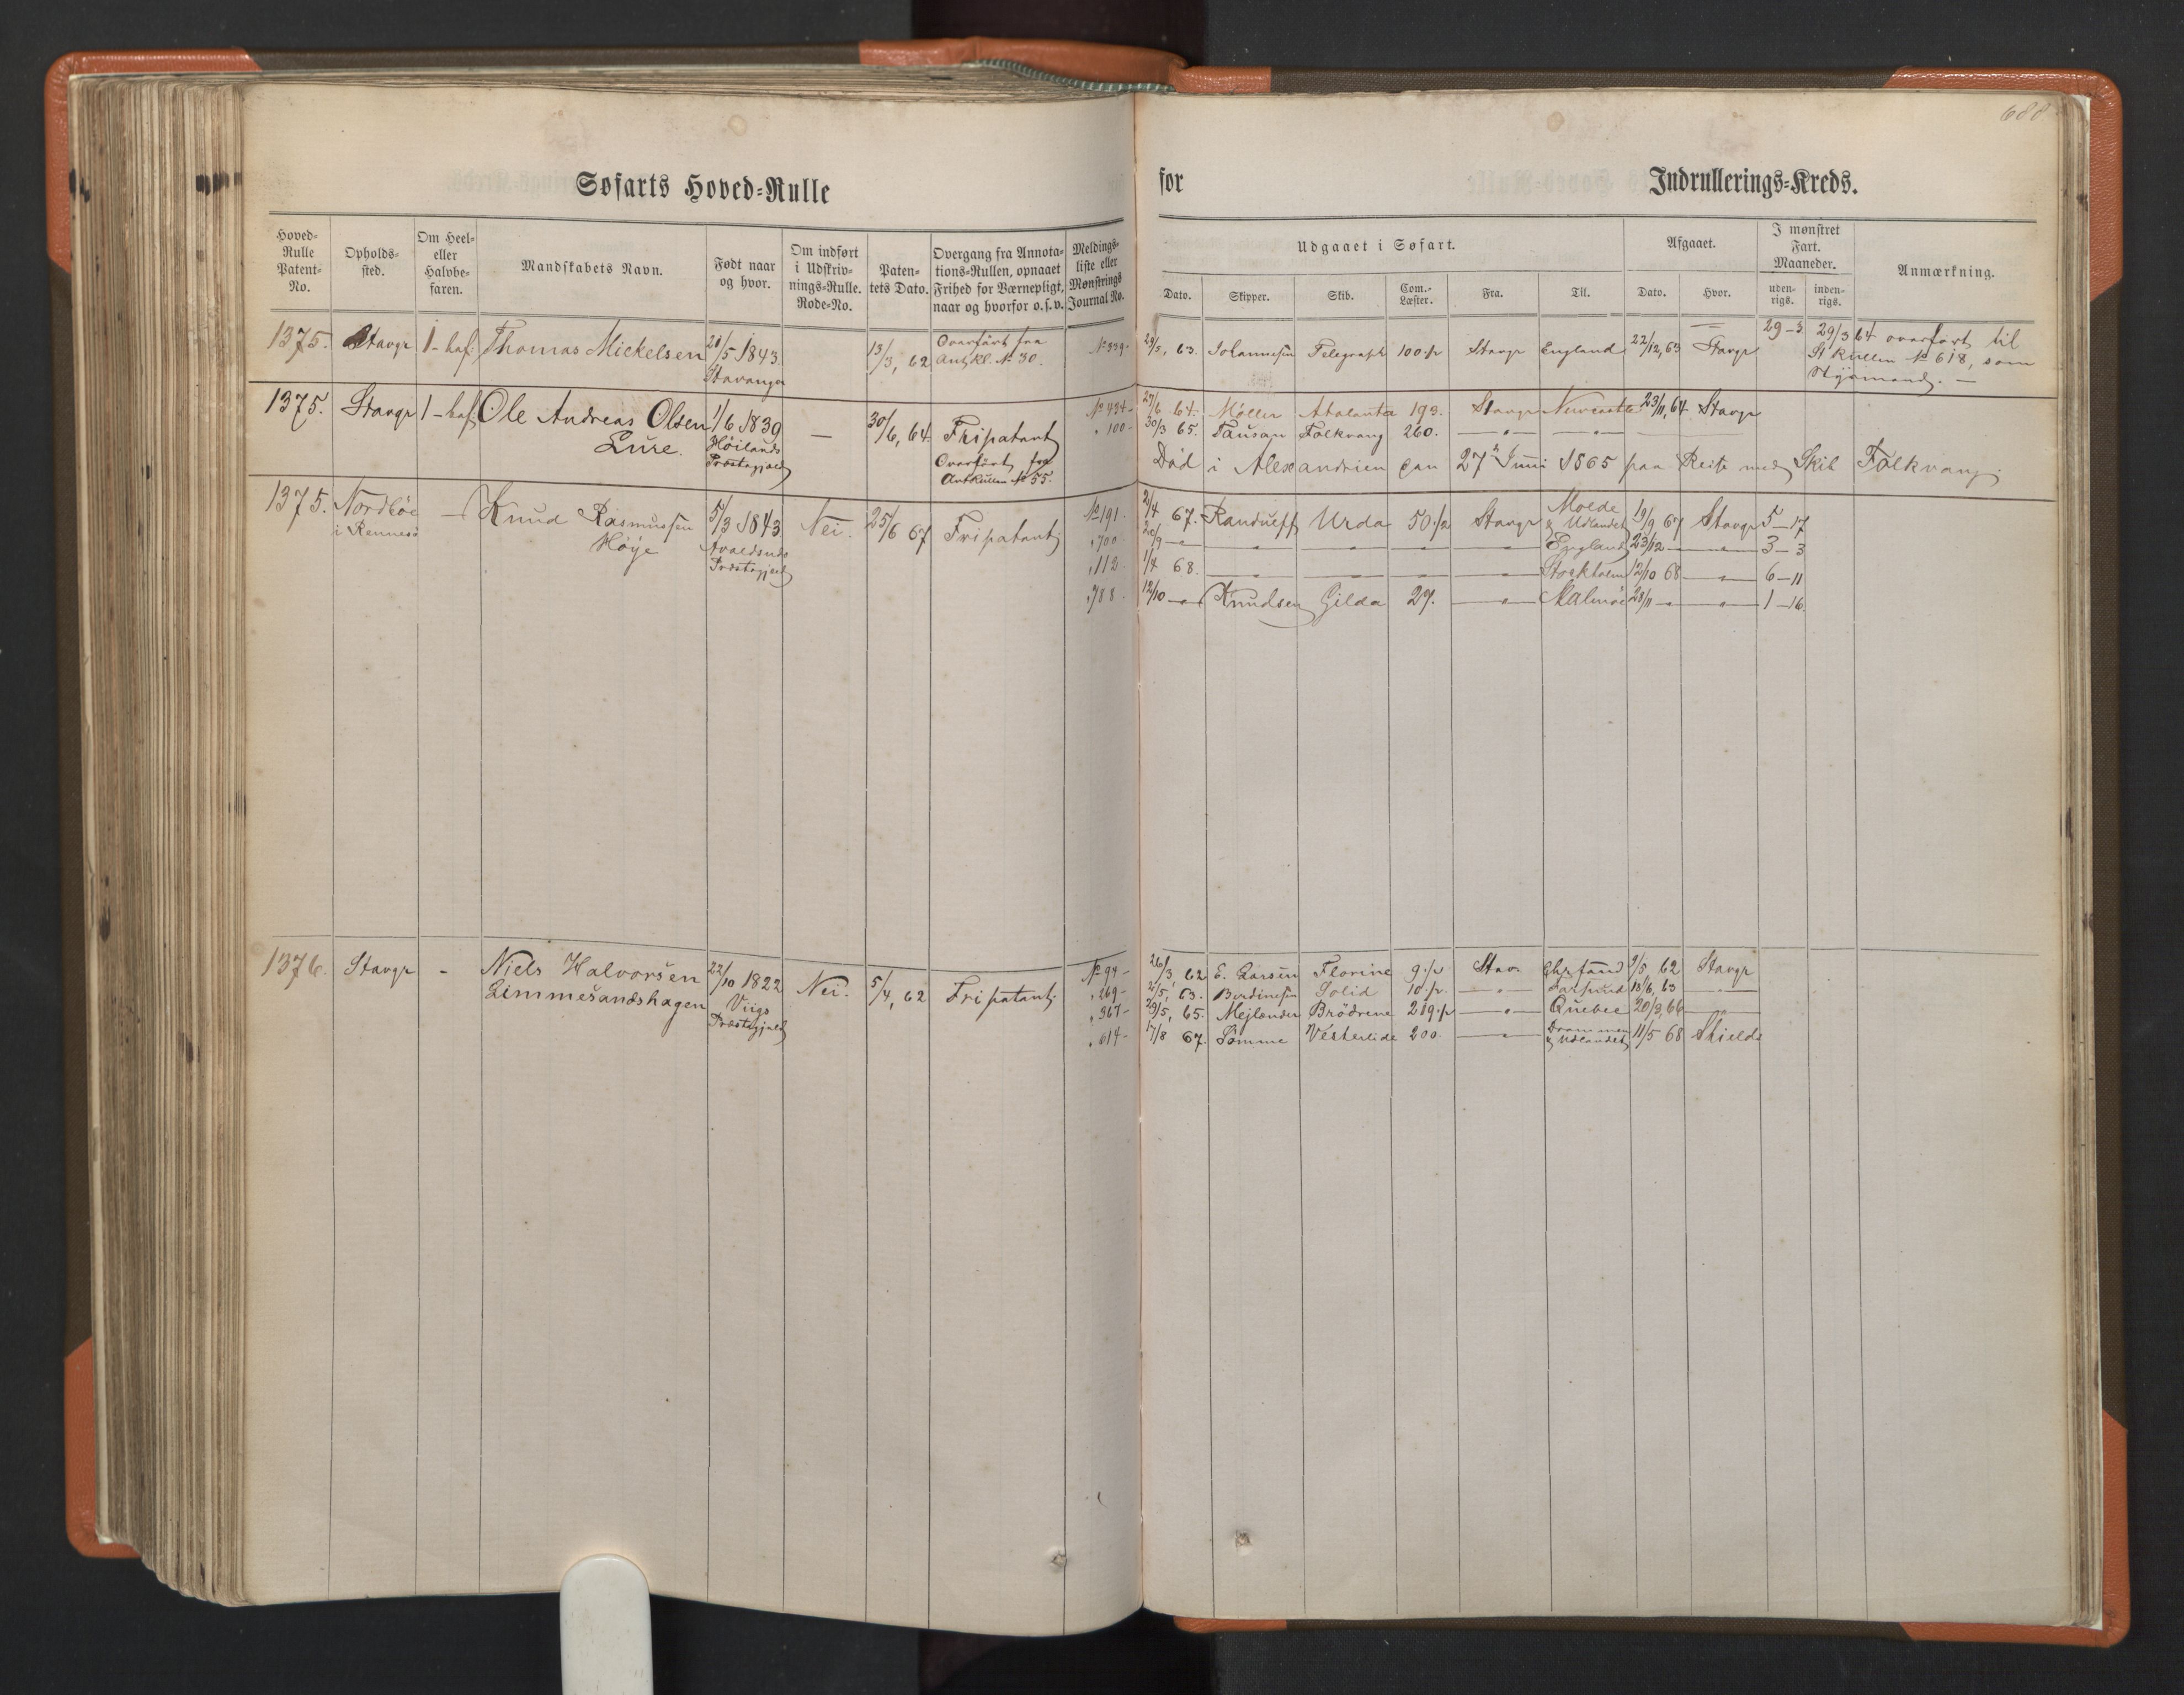 688
Søfarts Hoved-Rulle for Indrullerings-Kreds.
Hoved-Rulle Patent-No.
Opholds-sted.
Om Heel- eller Halvbefaren.
Mandskabets Navn.
Født naar og hvor.
Om indført i Udskrivnings-Rulle. Rode-No.
Patentets Dato.
Overgang fra Annotations-Rullen, opnaaet Frihed for Værnepligt, naar og hvorfor o.s.v.
Meldingsliste eller Mønstrings Journal No.
Udgaaet i Søfart.
Dato. Skipper. Skib. Com.-Læster. Fra. Til.
Afgaaet.
Dato. Hvor.
I mønstret Fart. Maaneder.
udenrigs. indenrigs.
Anmærkning.
1375. Stavgr 1-haf: Thomas Mickelsen 20/5 1843 Stavanger 13/3, 62 Overført fra Ant Rl. № 30. № 339- 29/5, 63. Johannesen Telegraph 100 1/2 Stavgr England 22/12, 63 Stavgr 29-3 29/3 64 overført til St Rullen № 618, som Styrmand. —
1375. Stavgr 1-haf: Ole Andreas Olsen Lure. 1/6 1839 Høilands Præstegjæld — 30/6, 64. Fripatent Overført fra AntRullen № 55.
№ 434- 27/6 64. Møller Atalanta 193. Stavgr Newcastle 23/11, 64 Stavgr
" 100- 30/3 65. Tausan Folkvang 260. — " — — " —
Død i Alexandrien den 27de Juni 1865 paa Reise med Skib Folkvang.
1375. Nordbøe i Rennesø — Knud Rasmussen Høye 5/3 1843 Avaldsnæs Præstegjæld Nei. 25/6 67 Fripatent
№ 191- 2/4 67. Randueff Urda 50 1/2 Stavgr Molde & Udlandet 19/9 67 Stavgr 5-17
" 700- 20/9 - " — " — — " — — " — — " — England 23/12 — — " — 3-3
" 112- 1/4 68. — " — — " — — " — — " — Stockholm 12/10 68 — " — 6-11
" 788- 12/10 - " Knudsen Gilda 29. — " — Malmøe 28/11 - " — " — 1-16
1376. Stavgr - Niels Halvorsen Limmesandshagen 22/10 1822 Viigs Præstegjæld Nei. 5/4, 62 Fripatent
№ 94- 26/3, 62 E. Larsen Florine 9 1/2 Stav. Chrsand 9/5 62 Stavgr
" 269- 2/5, 63. Berdinesen Solid 10 1/2 — " — 18/6, 63 — " —
" 367- 29/5, 65. Mejlænder Brødrene 219 1/2 — " — Quebec 20/3, 66 — " —
" 614- 17/8 67. Sømme Vesterlide 200 — " — Drammen & Udlandet 11/5 68 Shields